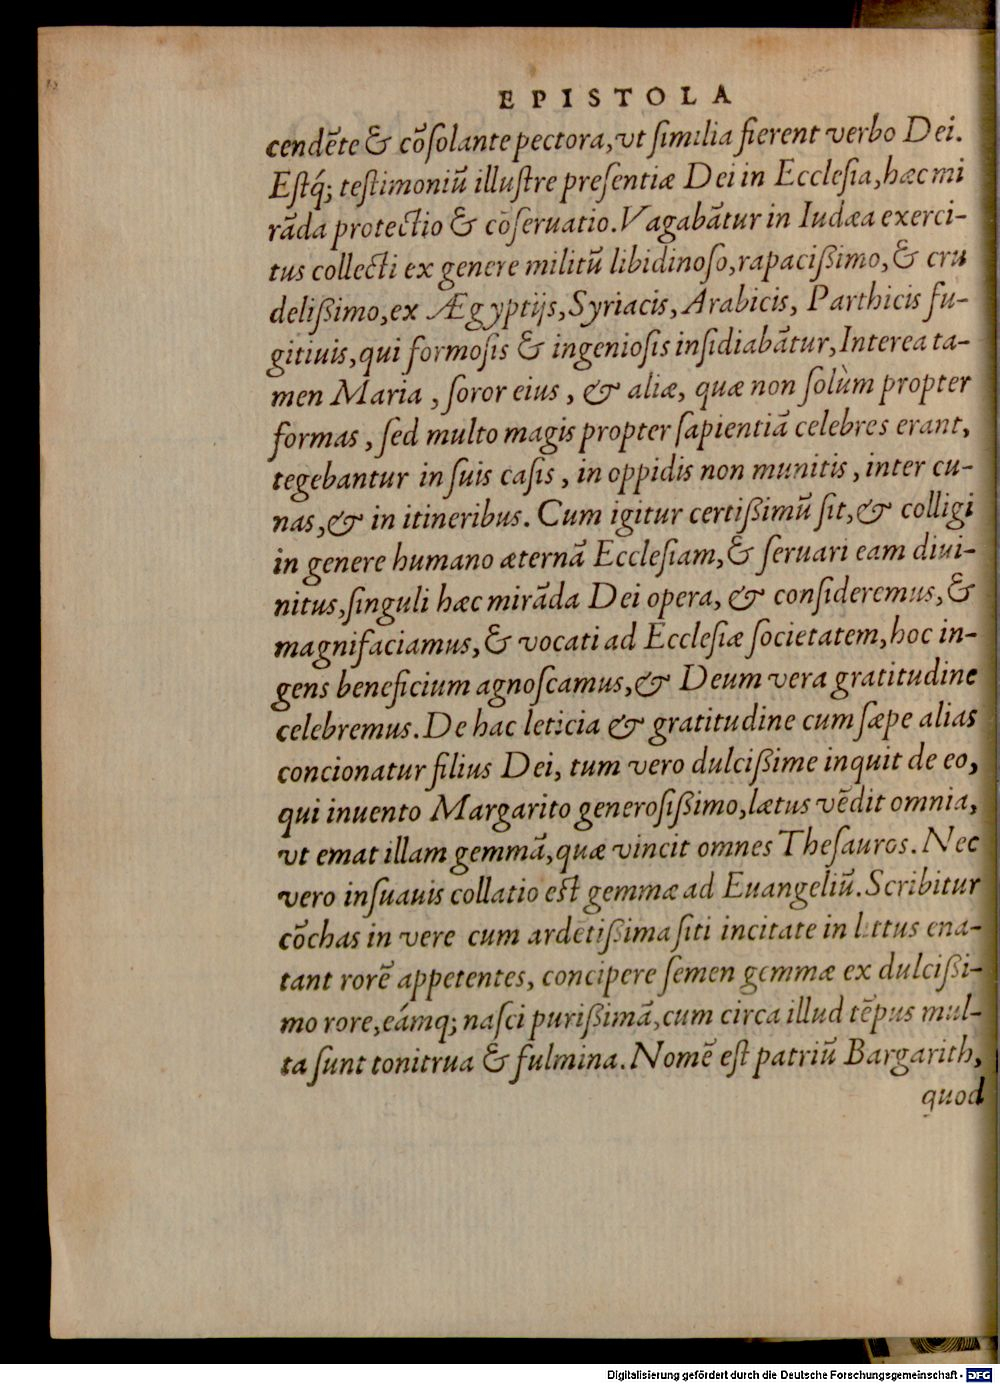 EPISTOLA
cendēte & cōſolante pectora, vt ſimilia fierent verbo Dei.
Eſtq́; teſtimoniū illuſtre preſentiæ Dei in Eccleſia, hæc mi
rāda protectio & cōſeruatio. Vagabātur in Iudæa exerci-
tus collecti ex genere militū libidinoſo, rapacißimo, & cru
delißimo, ex Ægyptijs, Syriacis, Arabicis, Parthicis fu-
gitiuis, qui formoſis & ingenioſis inſidiabātur, Interea ta-
men Maria, ſoror eius, & aliæ, quæ non ſolùm propter
formas, ſed multo magis propter ſapientiā celebres erant,
tegebantur in ſuis caſis, in oppidis non munitis, inter cu-
nas, & in itineribus. Cum igitur certißimū ſit, & colligi
in genere humano æternā Eccleſiam, & ſeruari eam diui-
nitus, ſinguli hæc mirāda Dei opera, & conſideremus, &
magnifaciamus, & vocati ad Eccleſiæ ſocietatem, hoc in-
gens beneficium agnoſcamus, & Deum vera gratitudine
celebremus. De hac leticia & gratitudine cum ſæpe alias
concionatur filius Dei, tum vero dulcißime inquit de eo,
qui inuento Margarito generoſißimo, lætus vēdit omnia,
vt emat illam gemmā, quæ vincit omnes Theſauros. Nec
vero inſuauis collatio eſt gemmæ ad Euangeliū. Scribitur
cōchas in vere cum ardētißima ſiti incitate in littus ena-
tant rorē appetentes, concipere ſemen gemmæ ex dulcißi-
mo rore, eámq; naſci purißimā, cum circa illud tēpus mul-
ta ſunt tonitrua & fulmina. Nomē eſt patriū Bargarith,
quod
Digitalisierung gefördert durch die Deutsche Forschungsgemeinschaft - DFG